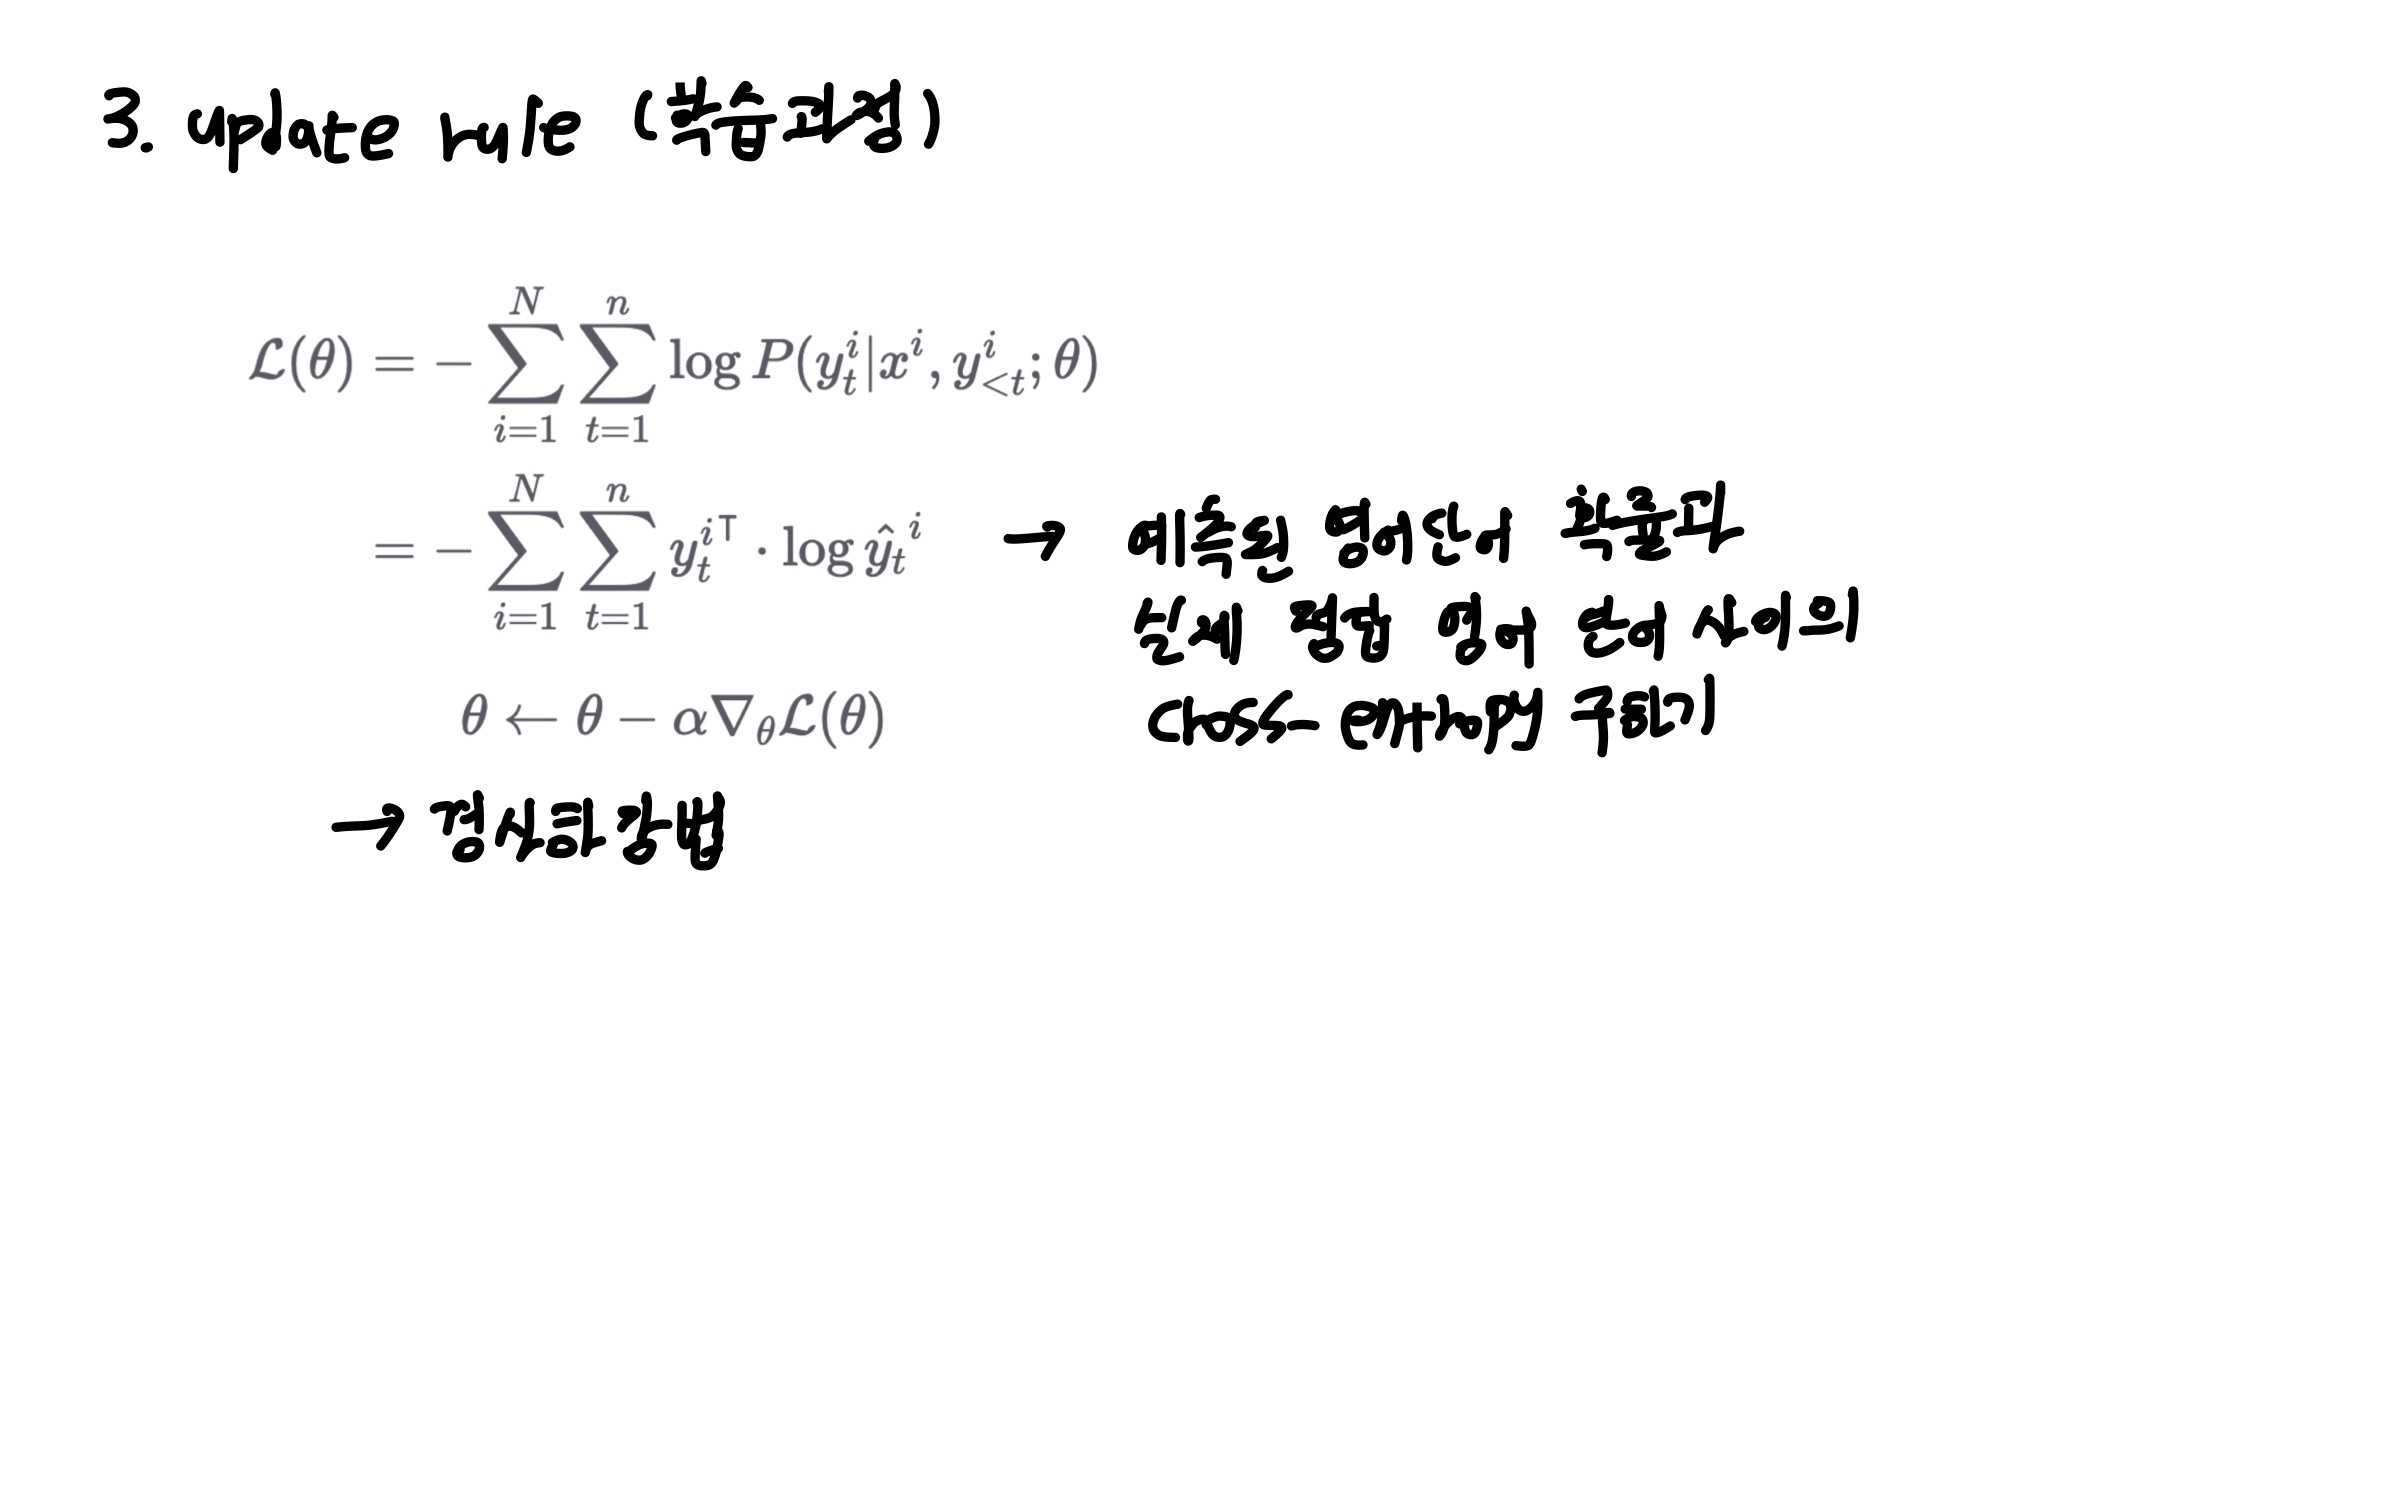 3. update rule (학습과정)
$\mathcal{L}(\theta) = -\sum_{i=1}^{N}\sum_{t=1}^{n} \log P(y_t^i|x^i, y_{<t}^i; \theta)$
$= -\sum_{i=1}^{N}\sum_{t=1}^{n} {y_t^i}^\top \cdot \log \hat{y}_t^i$ → 예측된 영어단어 확률과
실제 정답 영어 단어 사이의
cross-entropy 구하기
$\theta \leftarrow \theta - \alpha\nabla_\theta\mathcal{L}(\theta)$
→ 경사하강법